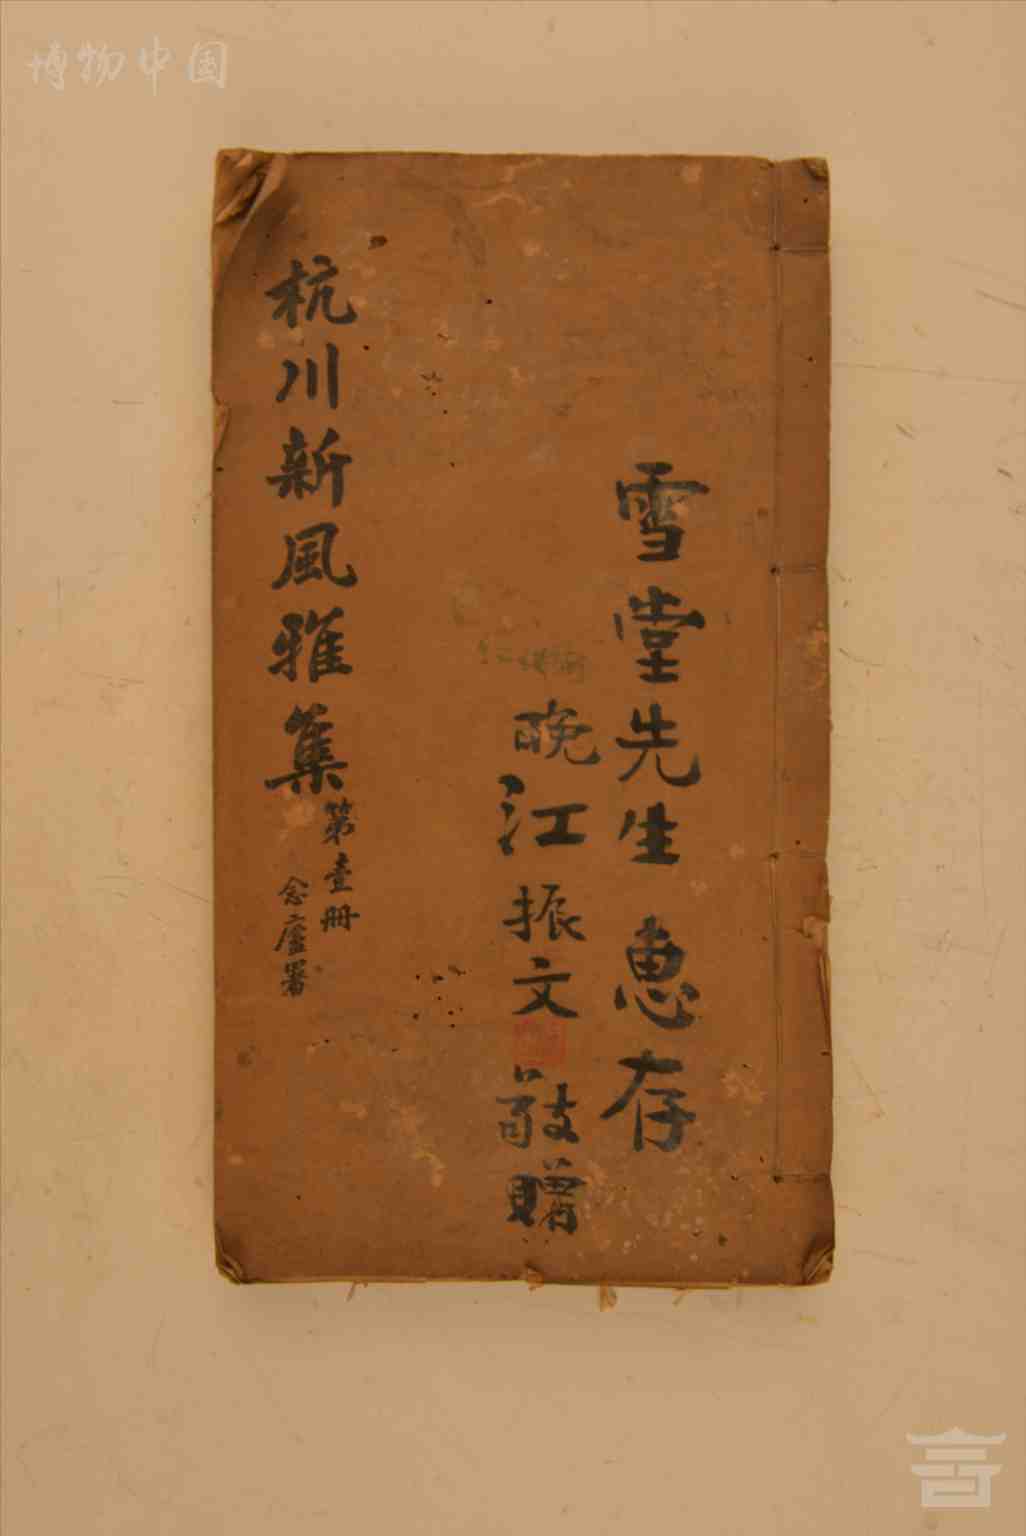 博物中国
雪堂先生惠存
晚江振文敬贈
杭川新風雅集
第壹冊
念廬署